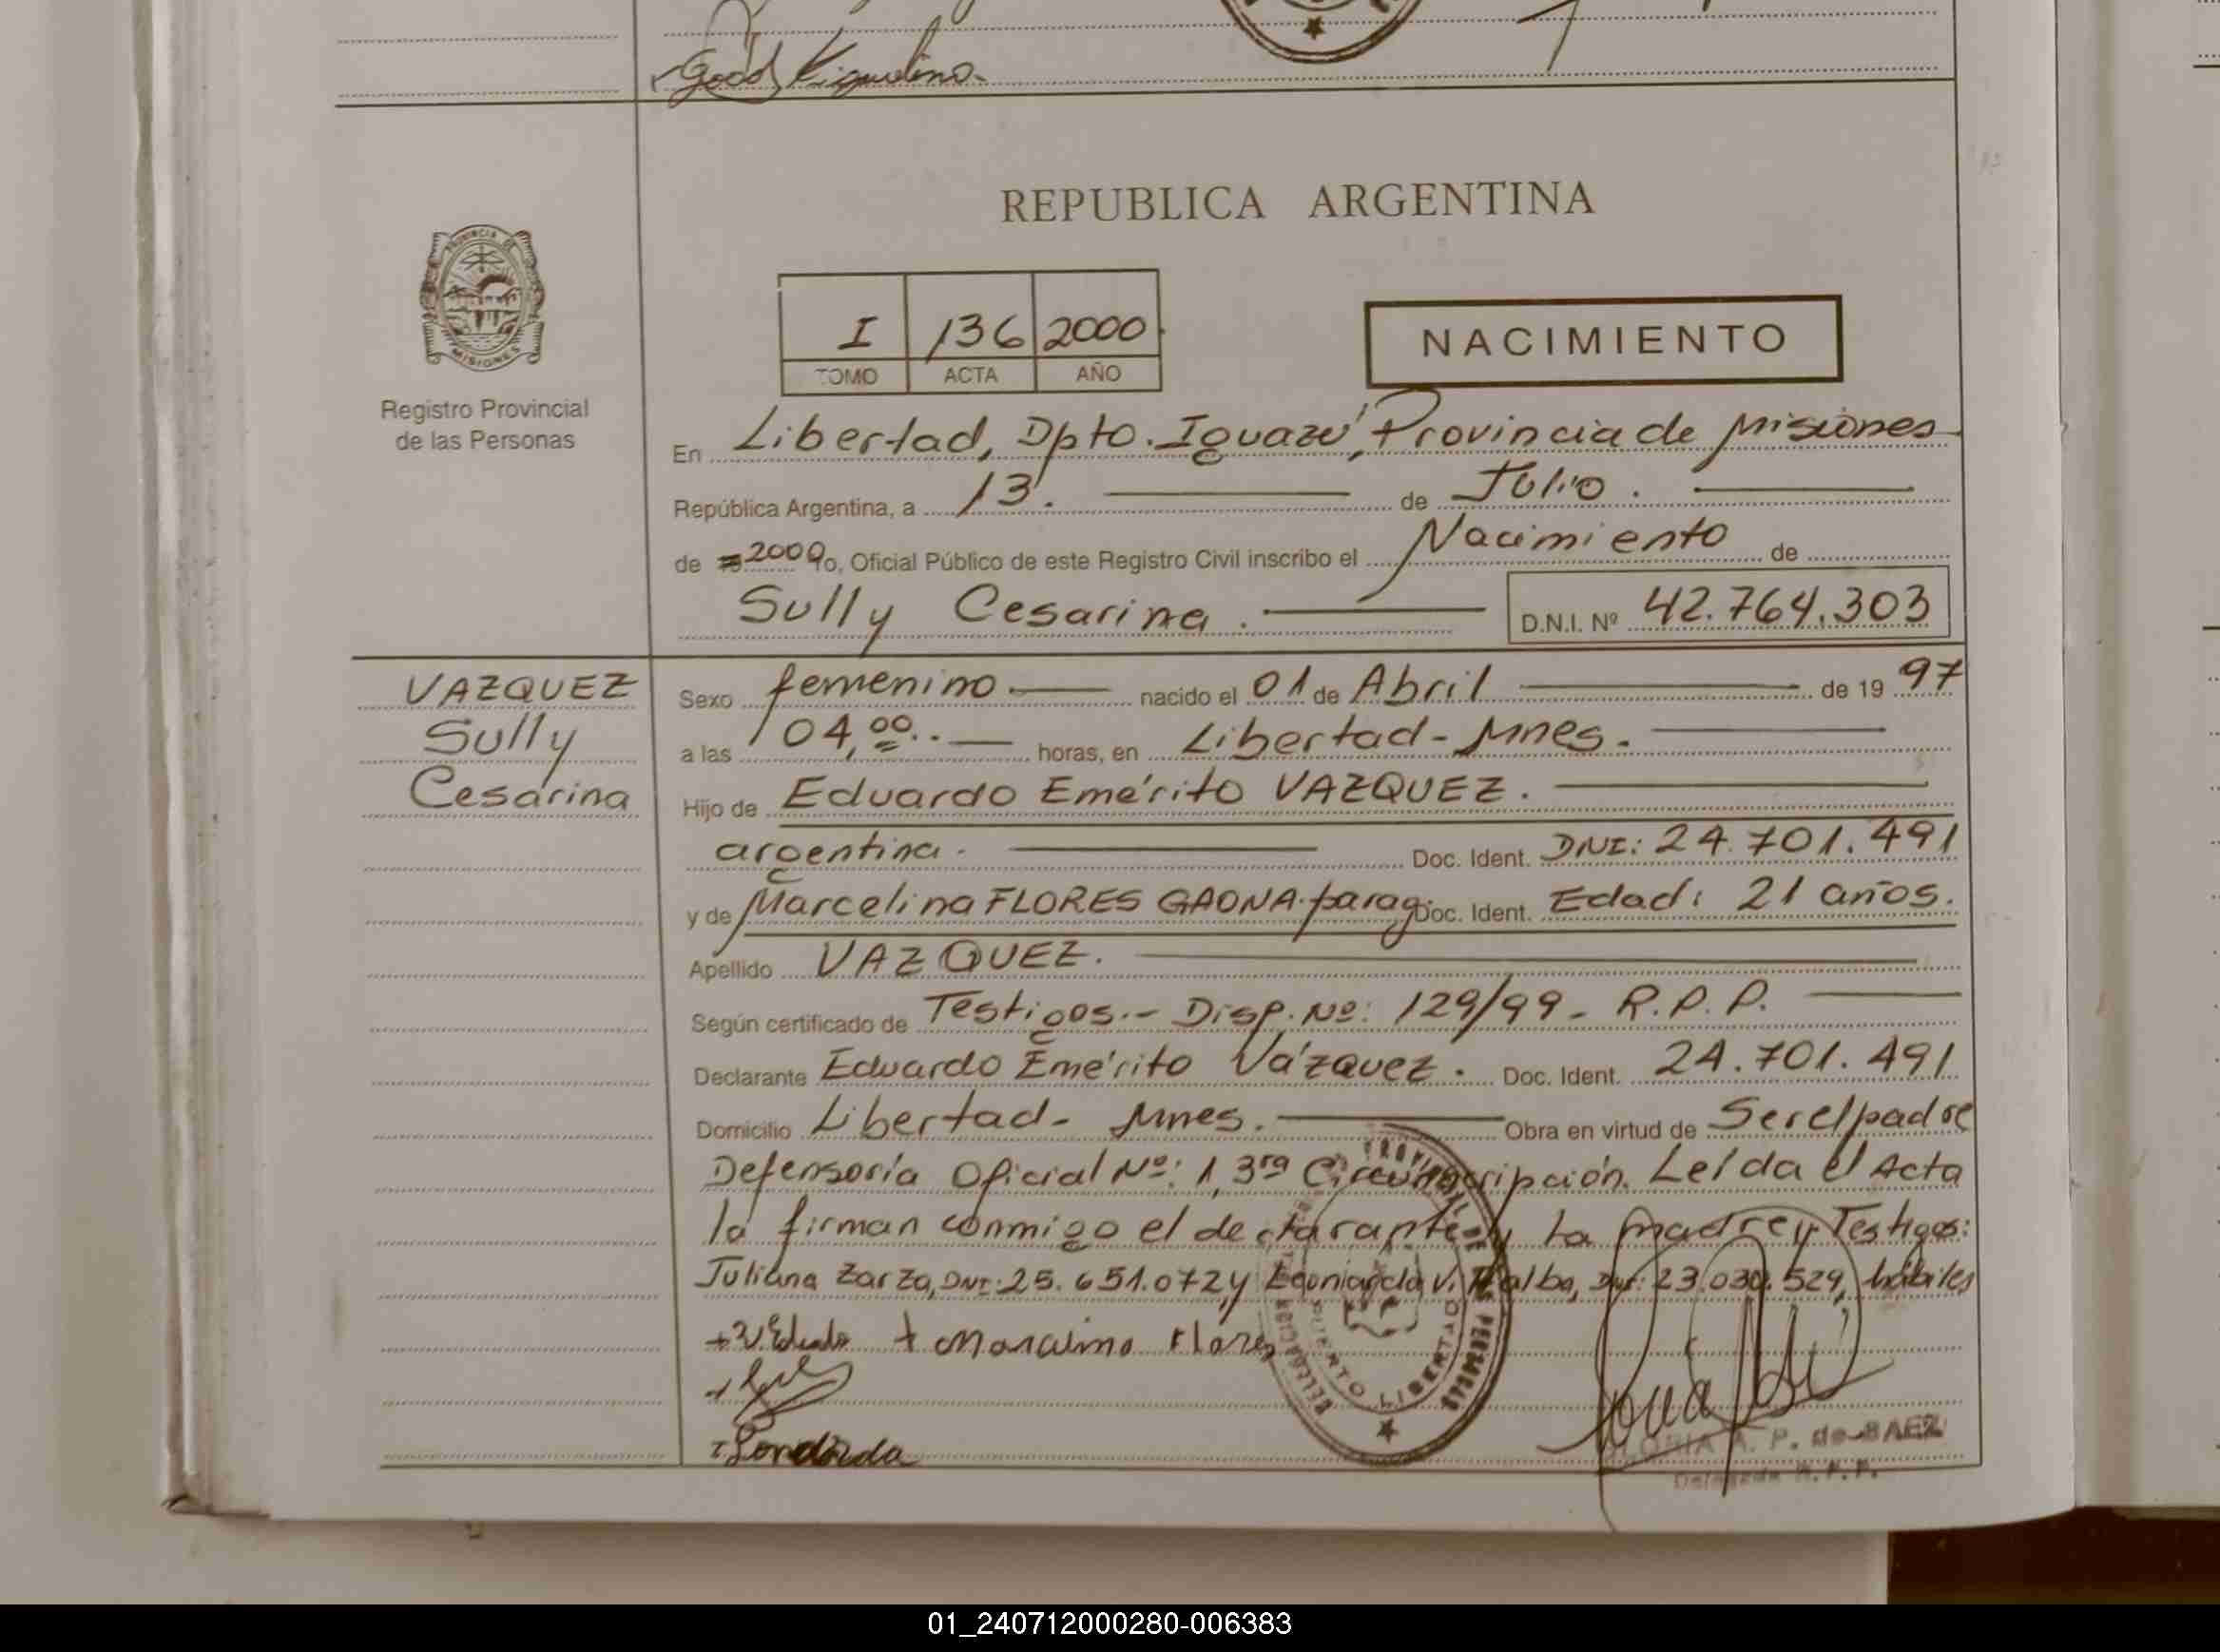 REPUBLICA ARGENTINA
PROVINCIA DE
MISIONES
Registro Provincial
de las Personas
I 136 2000
TOMO ACTA AÑO
NACIMIENTO
En Libertad, Dpto. Iguazú, Provincia de Misiones
República Argentina, a 13. de Julio.
de 2000 Yo, Oficial Público de este Registro Civil inscribo el Nacimiento de
Sully Cesarina. D.N.I. Nº 42.764.303
VAZQUEZ
Sully
Cesarina
Sexo femenino. nacido el 01 de Abril de 19 97
a las 04,00.. horas, en Libertad - Mnes.
Hijo de Eduardo Emérito VAZQUEZ.
argentina. Doc. Ident. DNI: 24.701.491
y de Marcelina FLORES GAONA. parag. Doc. Ident. Edad: 21 años.
Apellido VAZQUEZ.
Según certificado de Testigos.- Disp. Nº: 129/99 - R.P.P.
Declarante Eduardo Emérito Vázquez. Doc. Ident. 24.701.491
Domicilio Libertad - Mnes. Obra en virtud de Ser el padre
Defensoría Oficial Nº: 1, 3ra Circunscripción. Leída el Acta
la firman conmigo el declarante y la madre y Testigos:
Juliana Zarza, DNI: 25.651.072, y Leoniarda V. DNI: 23.030.529, hábiles
+ Marcelina Flores
PUERTO LIBERTAD
GLORIA A. P. de BAEZ
Delegada R.P.P.
01_240712000280-006383